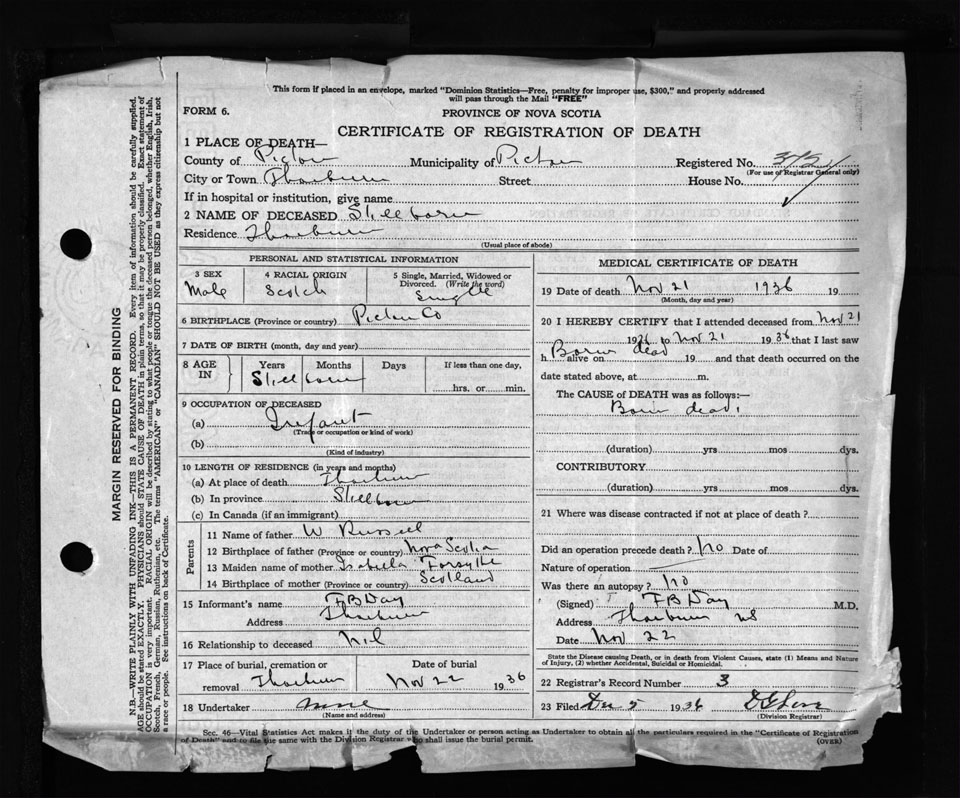 This form if placed in an envelope, marked "Dominion Statistics—Free, penalty for improper use, $300," and properly addressed
will pass through the Mail "FREE"
FORM 6.
PROVINCE OF NOVA SCOTIA
CERTIFICATE OF REGISTRATION OF DEATH
1 PLACE OF DEATH—
County of Pictou Municipality of Pictou Registered No.
(For use of Registrar General only)
City or Town Thorburn Street House No.
If in hospital or institution, give name
2 NAME OF DECEASED Stillborn
Residence Thorburn
(Usual place of abode)
PERSONAL AND STATISTICAL INFORMATION
3 SEX 4 RACIAL ORIGIN 5 Single, Married, Widowed or Divorced. (Write the word)
Male Scotch Single
6 BIRTHPLACE (Province or country) Pictou Co
7 DATE OF BIRTH (month, day and year)
8 AGE IN Years Months Days If less one day,
Stillborn hrs. or min.
9 OCCUPATION OF DECEASED
(a) Infant
(Trade or occupation or kind of work)
(b)
(Kind of industry)
10 LENGTH OF RESIDENCE (in years and months)
(a) At place of death Thorburn
(b) In province Stillborn
(c) In Canada (if an immigrant)
Parents
11 Name of father W Russell
12 Birthplace of father (Province or country) Nova Scotia
13 Maiden name of mother Isabella Forsythe
14 Birthplace of mother (Province or country) Scotland
15 Informant's name F B Day
Address Thorburn
16 Relationship to deceased Nil
17 Place of burial, cremation or Date of burial
removal Thorburn Nov 22 1936
18 Undertaker none
(Name and address)
MEDICAL CERTIFICATE OF DEATH
19 Date of death Nov 21 1936 19
(Month, day and year)
20 I HEREBY CERTIFY that I attended deceased from Nov 21
1936 to Nov 21 1936 that I last saw
h alive on Born dead 19 and that death occurred on the
date stated above, at m.
The CAUSE OF DEATH was as follows:—
Born dead.
(duration) yrs mos dys.
CONTRIBUTORY
(duration) yrs mos dys.
21 Where was disease contracted if not at place of death?
Did an operation precede death? No Date of
Nature of operation
Was there an autopsy? No
(Signed) F B Day M.D.
Address Thorburn NS
Date Nov 22
State the Disease causing Death, or in death from Violent Causes, state (1) Means and Nature
of Injury, (2) whether Accidental, Suicidal or Homicidal.
22 Registrar's Record Number 3
23 Filed Dec 5 1936
(Division Registrar)
Sec. 46—Vital Statistics Act makes it the duty of the Undertaker or person acting as Undertaker to obtain all the particulars required in the "Certificate of Registration
of Death" and to file the same with the Division Registrar who shall issue the burial permit. (OVER)
MARGIN RESERVED FOR BINDING
N.B.—WRITE PLAINLY WITH UNFADING INK—THIS IS A PERMANENT RECORD. Every item of information should be carefully supplied.
AGE should be stated EXACTLY. PHYSICIANS should STATE CAUSE OF DEATH in plain terms, so that it may be properly classified. Exact statement of
OCCUPATION is very important. RACIAL ORIGIN will be described by stating to what people or tongue the deceased person belonged, whether English, Irish,
Scotch, French, German, Russian, Ruthenian, etc. The terms "AMERICAN" or "CANADIAN" SHOULD NOT BE USED as they express citizenship but not
a race or people. See instructions on back of Certificate.